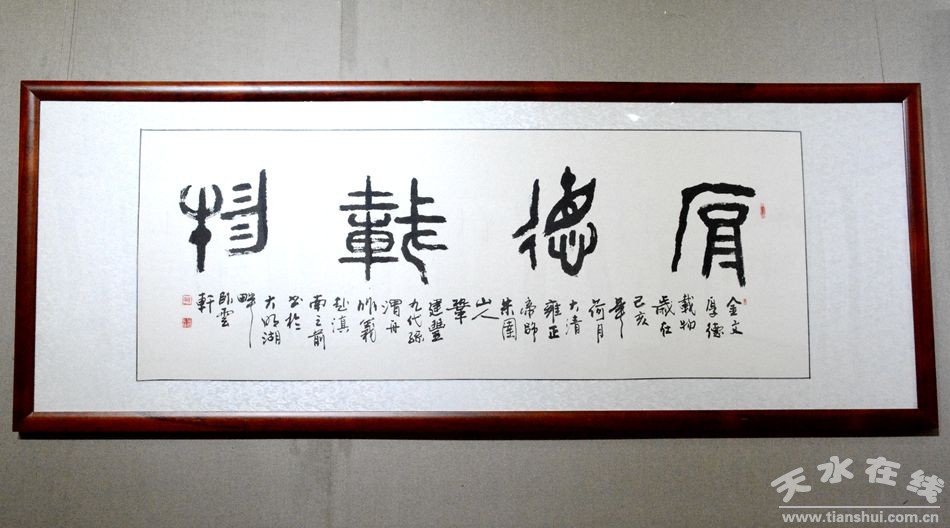 厚德載物
金文
厚德
載物
歲在
己亥
年
荷月
大清
雍正
帝師
朱圉
山人
鞏
建豐
九代孫
渭舟
帅義
赴滇
南之前
书於
大明湖
畔
卧雲
軒
天水在线
www.tianshui.com.cn